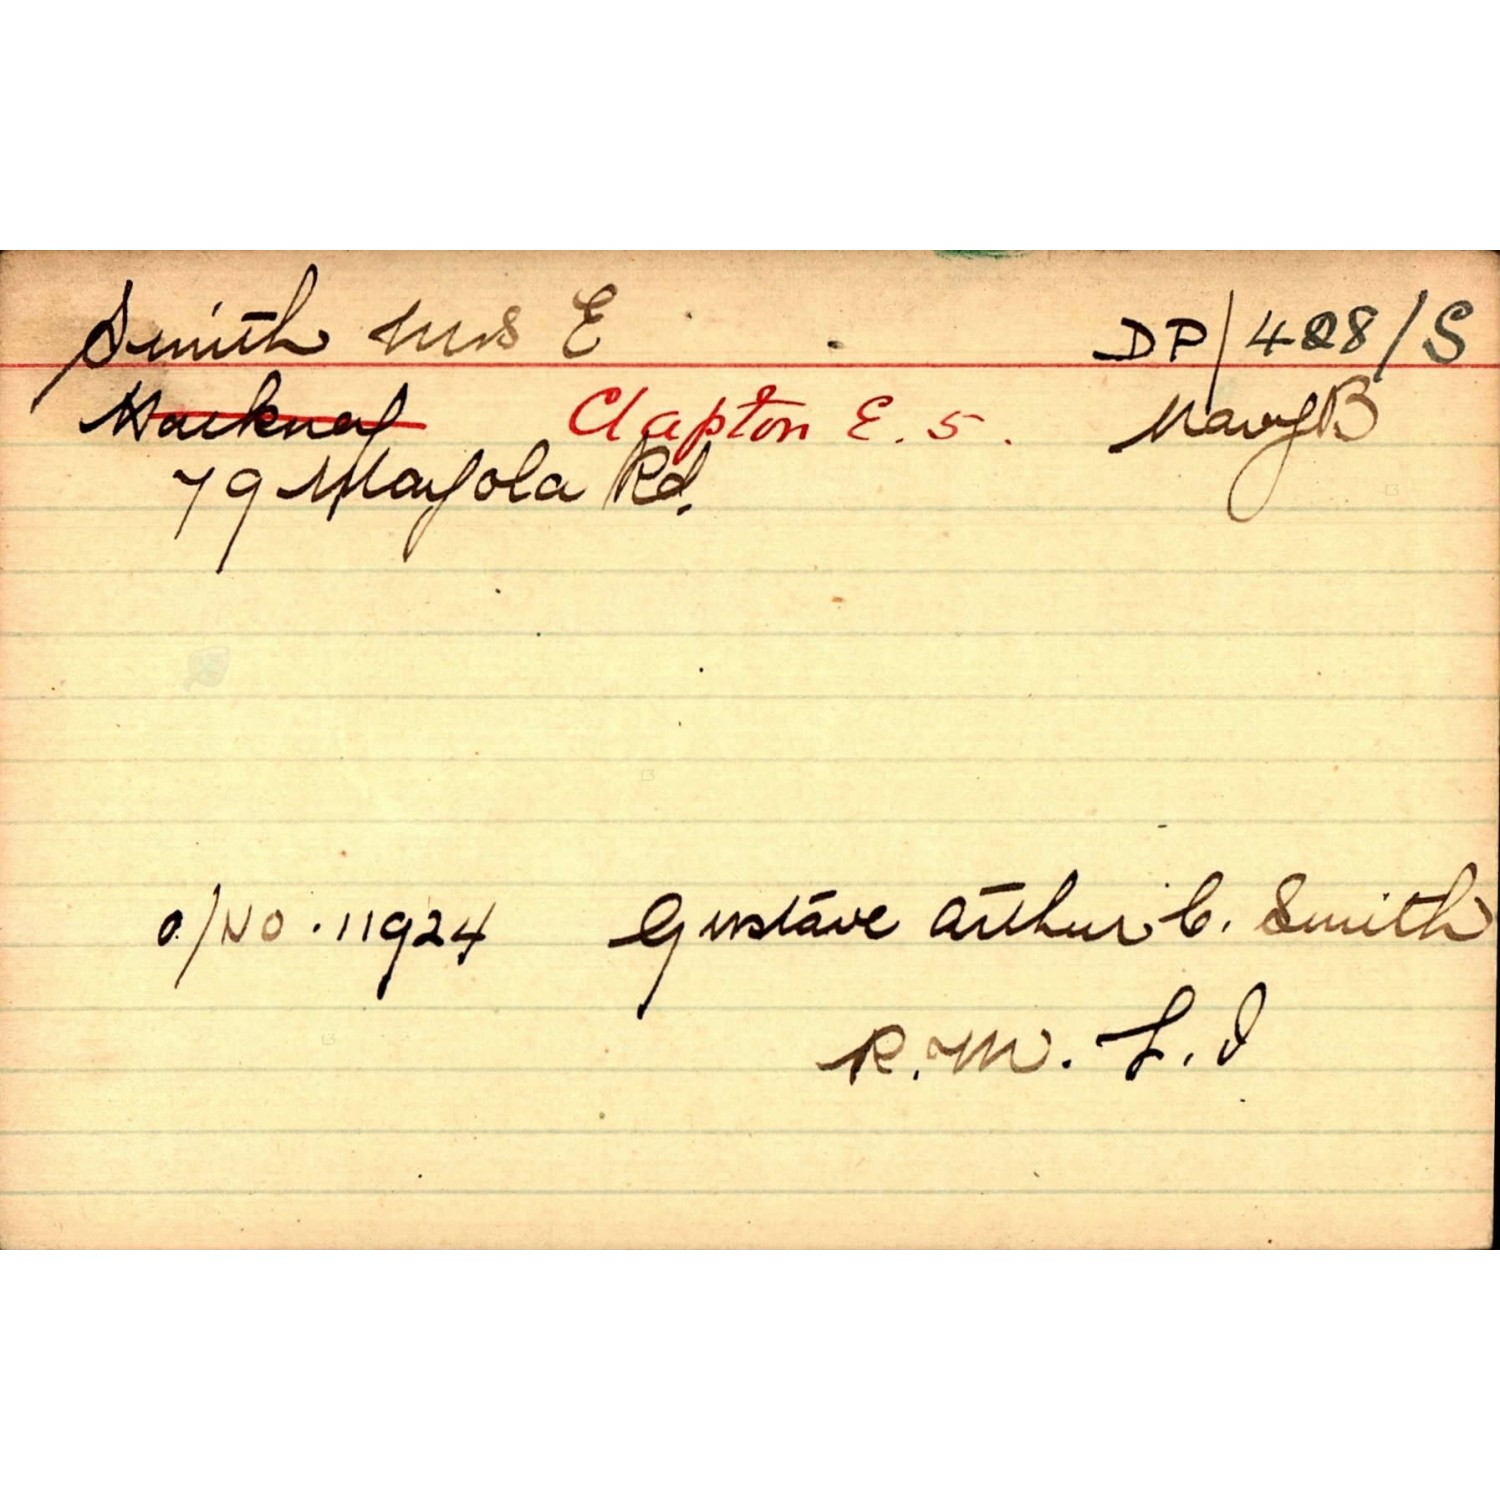 Smith Mrs E DP/488/S
Hackney Clapton E. 5. Navy B
79 Mayola Rd.
O/NO. 11924 Gustave Arthur C. Smith
R.M.L.I